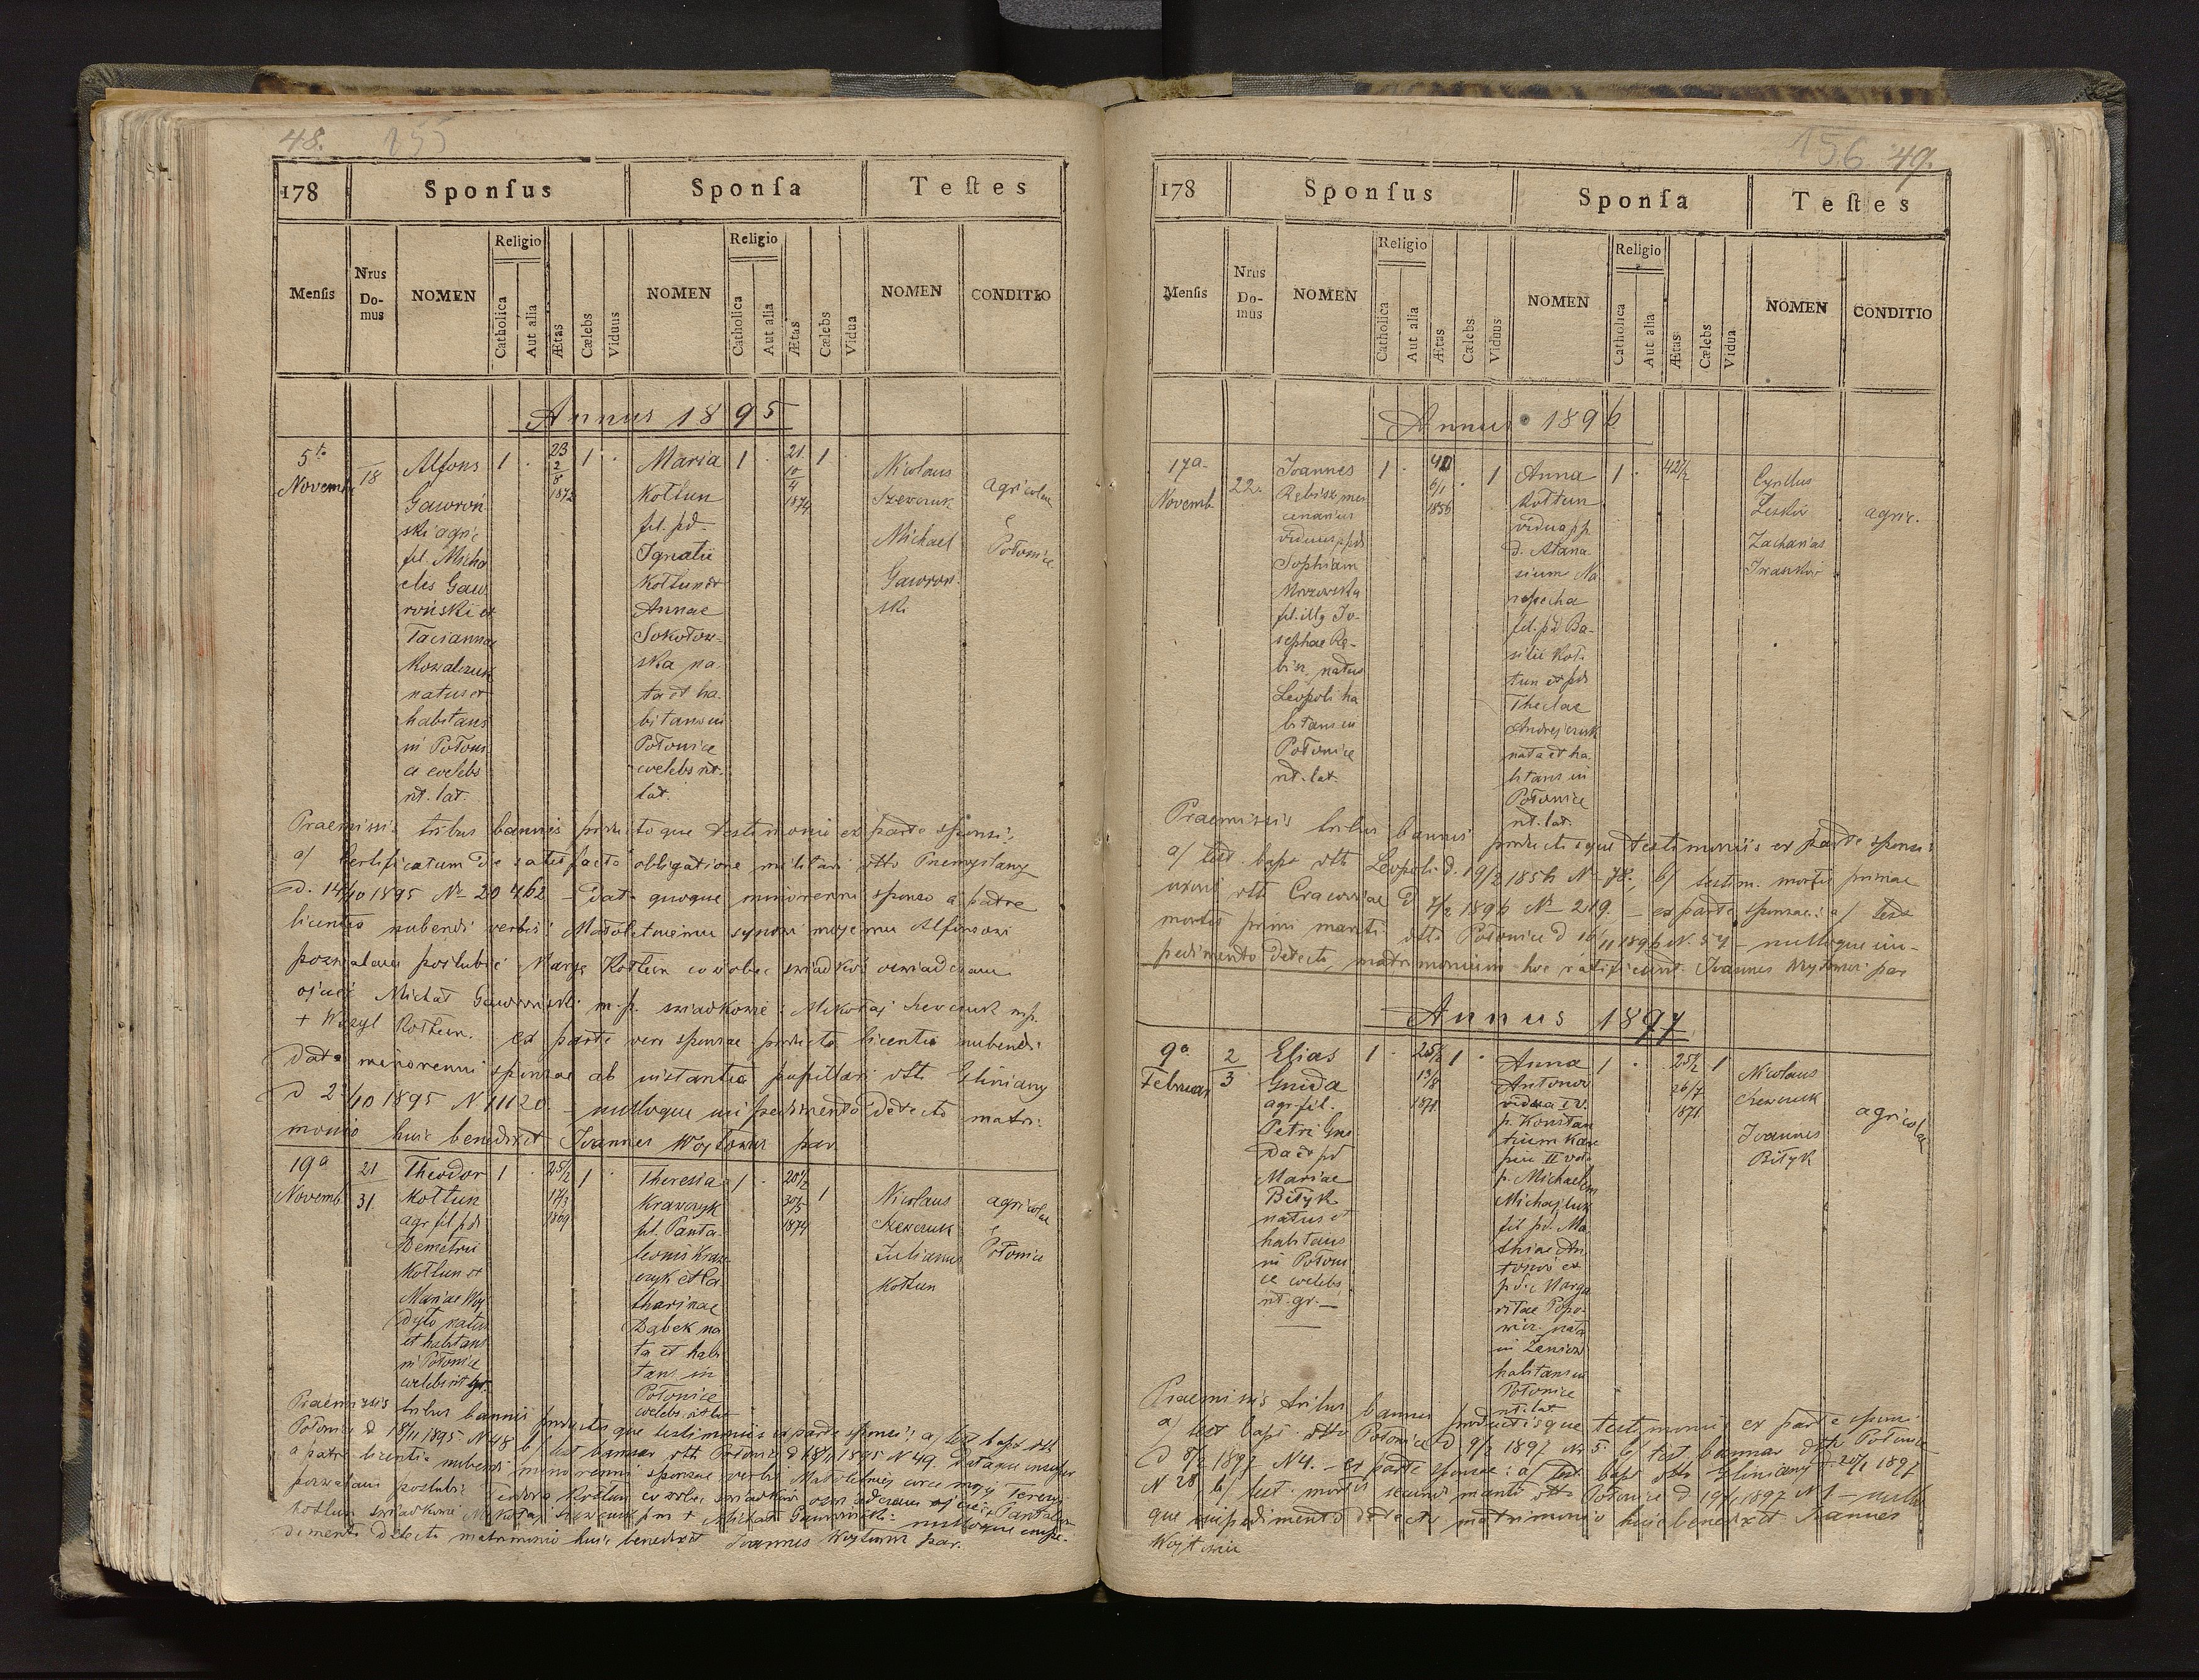 48. 155
178 Sponsus Sponsa Testes
Mensis Nrus Domus NOMEN Religio Catholica Aut alia Ætas Cælebs Viduus NOMEN Religio Catholica Aut alia Ætas Cælebs Vidua NOMEN CONDITIO
Annus 1895
5ta
Novemb
18
Alfons
Gawroń
ski agric
fil. Micha
elis Gaw
roński et
Tacianna
Kowalczuk
natus et
habitans
in Połoni
ce coelebs
rit. lat.
1 .
23
2/8
1872
1 .
Maria
Kołtun
fil. pd.
Ignatii
Kołtun et
Annae
Sokołow-
ska na
ta et ha
bitans in
Połonice
coelebs rit.
lat.
1 .
21
10/4
1874
1
Nicolaus
Szewczuk
Michael
Gawroń
ski
agricolae
Połonice
Praemissis tribus bannis productoque testimonio ex parte sponsi:
a/ Certificatum de satisfacto obligatione militari dtto Przemyślany
d. 14/10 1895 No 20462 – Data quoque minorenni sponso a patre
licentia nubendi verbis: Małoletniemu synowi mojemu Alfonsowi
pozwalam poślubić Maryę Kołtun co wobec świadków oświadczam
ojciec Michał Gawroński m.p. świadkowie: Mikołaj Szewczuk mp.
+ Wasyl Kołtun. ex parte vero sponsae producta licentia nubendi
data minorenni sponsae ab instantia pupillari dtto Gliniany
d 2/10 1895 N 11120. – nulloque impedimento detecto matri-
monio huic benedixit Joannes Wojtowicz par
19a
Novemb
21
31
Theodor
Kołtun
agr fil pd
Demetrii
Kołtun et
Mariae Woj
dyło natus
et habitans
in Połonice
coelebs rit gr.
1 .
25 1/2
17/3
1869
1 .
Theresia
Krawczyk
fil. Panta-
leonis Kraw
czyk et Ca
tharinae
Dąbek na
ta et habi
tans in
Połonice
coelebs rit lat
1 .
20 1/2
30/5
1874
1
Nicolaus
Szewczuk
Julianus
Kołtun
agricolae
Połonice
Praemissis tribus bannis productisque testimoniis ex parte sponsi: a/ test bapt dtt
Połonice d 18/11 1895 N 48 b/ test bannor dtt Połonice d 18/11 1895 N 49. Data insuper
a patre licentia nubendi minorenni sponsae verbis Małoletniej córce mojej Teresy
pozwalam poślubić Teodora Kołtun co wobec świadków oświadczam ojciec + Pantalejon
Kołtun świadkowie Mikołaj Szewczuk pm + Michał Gawroński: nulloque impe-
dimento detecto matrimonio huic benedixit Joannes Wojtowicz par.
156 49.
178 Sponsus Sponsa Testes
Mensis Nrus Domus NOMEN Religio Catholica Aut alia Ætas Cælebs Viduus NOMEN Religio Catholica Aut alia Ætas Cælebs Vidua NOMEN CONDITIO
Annus 1896
17a
Novemb
22.
Joannes
Rębisz mer
cenarius
viduus p pd
Sophiam
Mrozowska
fil. illg Jo-
sephae Rę-
bisz natus
Leopoli ha
bitans in
Połonice
rit. lat.
1 .
40
6/1
1856
. 1
Anna
Kołtun
vidua pp
d. Atana
sium Na
fil. pd Ba-
silii Koł-
tun et pd
Theclae
Andrejczuk
nata et ha
bitans in
Połonice
rit. lat.
1 .
42 1/2
Cyrillus
Zeskiw
Zacharias
Iwankiw
agric.
Praemissis tribus bannis productisque testimoniis ex parte sponsi:
a/ test. bapt dtt Leopoli d. 19/2 1856 N 78., b/ testim. mortis primae
uxoris dtt Cracoviae d 7/2 1896 No 219. – ex parte sponsae: a/ test
mortis primi mariti dtto Połonice d 16/11 1896 N. 54 – nulloque im-
pedimento detecto, matrimonium hoc ratificavit Joannes Wojtowicz par
Annus 1897
9a
Februar
2
3
Elias
Gnida
agr fil.
Petri Gni
da et pd
Mariae
Biłyk
natus et
habitans
in Połoni
ce coelebs
rit. gr. –
1 .
25 1/2
13/8
1871
1 .
Anna
Antonow
vidua I v.
p. Konstan
tium Kar
piu II voto
p. Michaelem
Michajluk
fil pd. Ma
thiae An
tonow et
pd. Marga
ritae Popo-
wicz nata
in Zeniow
habitans in
Połonice
rit lat
1 .
25 1/2
26/7
1871
1
Nicolaus
Szewczuk
Joannes
Biłyk
agricolae
Praemissis tribus bannis productisque testimoniis ex parte sponsi:
a/ test bapt. dtto Połonice d 9/2 1897 N 5. b/ test bannor dtto Połonice
d 8/2 1897 N 4. – ex parte sponsae: a/ test. bapt dtto Gliniany d 20/1 1897
N 28 b/ test. mortis secundi mariti dtto Połonice d 19/1 1897 N 1 – nullo
que impedimento detecto matrimonio huic benedixit Joannes
Wojtowicz